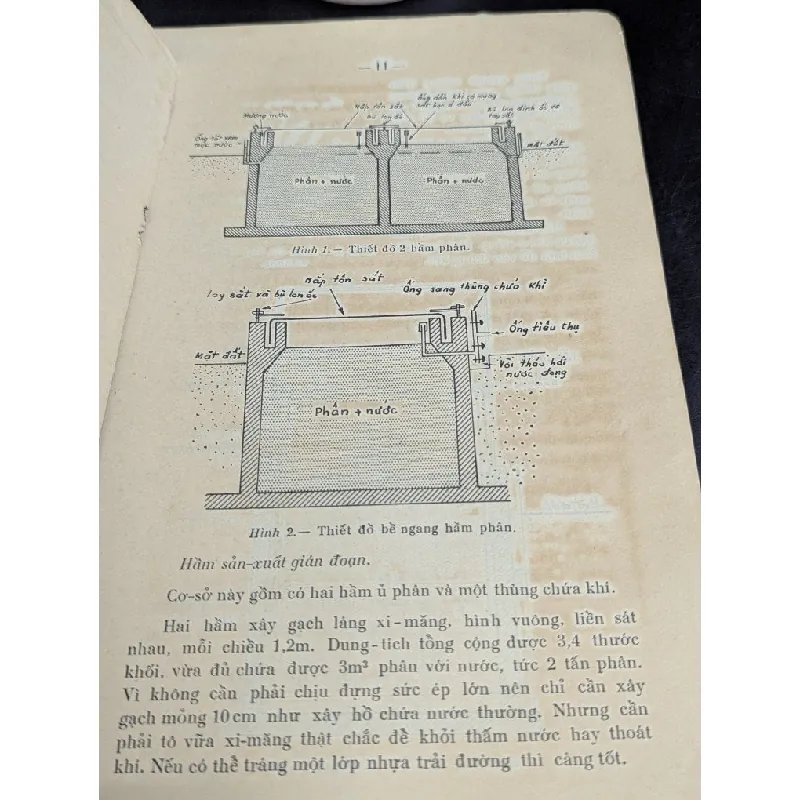 — 11 —
Ống dẫn khí có miệng
Nắp tôn sắt
Mương nước
mực nước
mặt đất
Phân + nước
Phân + nước
Hình 1.— Thiết đồ 2 hầm phân.
nắp tôn sắt
Ống sang thùng chứa khí
tay sắt và bù lon ốc
Ống tiêu thụ
Mặt đất
Vòi tháo hơi
nước đọng
Phân + nước
Hình 2.— Thiết đồ bề ngang hầm phân.
Hầm sản-xuất gián đoạn.
Cơ-sở này gồm có hai hầm ủ phân và một thùng chứa khí.
Hai hầm xây gạch láng xi-măng, hình vuông, liền sát
nhau, mỗi chiều 1,2m. Dung-tích tổng cộng được 3,4 thước
khối, vừa đủ chứa được 3m³ phân với nước, tức 2 tấn phân.
Vì không cần phải chịu đựng sức ép lớn nên chỉ cần xây
gạch mỏng 10cm như xây hồ chứa nước thường. Nhưng cần
phải tô vữa xi-măng thật chắc để khỏi thấm nước hay thoát
khí. Nếu có thể tráng một lớp nhựa trải đường thì càng tốt.